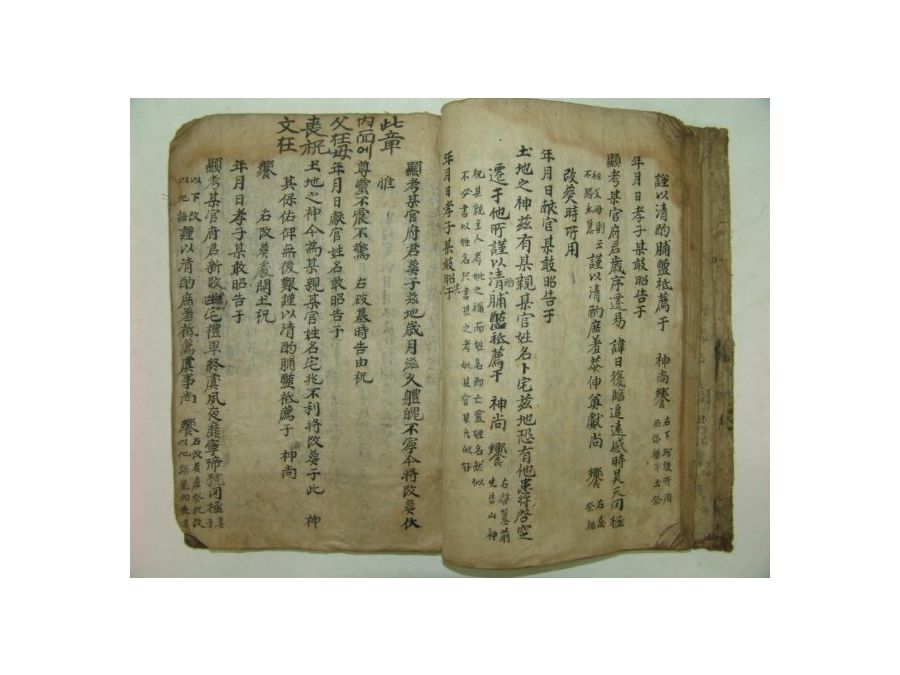 謹以清酌脯醢祗薦于 神尙 饗
年月日孝子某敢昭告于
顯考某官府君歲序遷易 諱日復臨追遠感時昊天罔極
祖父母則云
不勝永慕
謹以清酌庶羞恭伸奠獻尙 饗
改葬時所用
年月日獻官某敢昭告于
土地之神玆有某親某官姓名卜宅玆地恐有他患將啓窆
遷于他所謹以清酌脯醢祗薦于 神尙 饗
右啓墓前
先告山神
年月日孝子某敢昭于
顯考某官府君葬于玆地歲月滋久體魄不寧今將改葬伏
惟
尊靈不震不驚 右破墓時告由祝
年月日獻官姓名敢昭告于
土地之神今為某親某官姓名宅兆不利將改葬于此 神
其保佑俾無後艱謹以清酌脯醢祗薦于 神尙
饗 右改葬處開土祝
年月日孝子某敢昭告于
顯考某官府君新改幽宅禮畢終虞夙夜靡寧啼號罔極
謹以清酌庶羞祗薦虞事尙 饗
此章
內面에
父在母
喪祝
文在